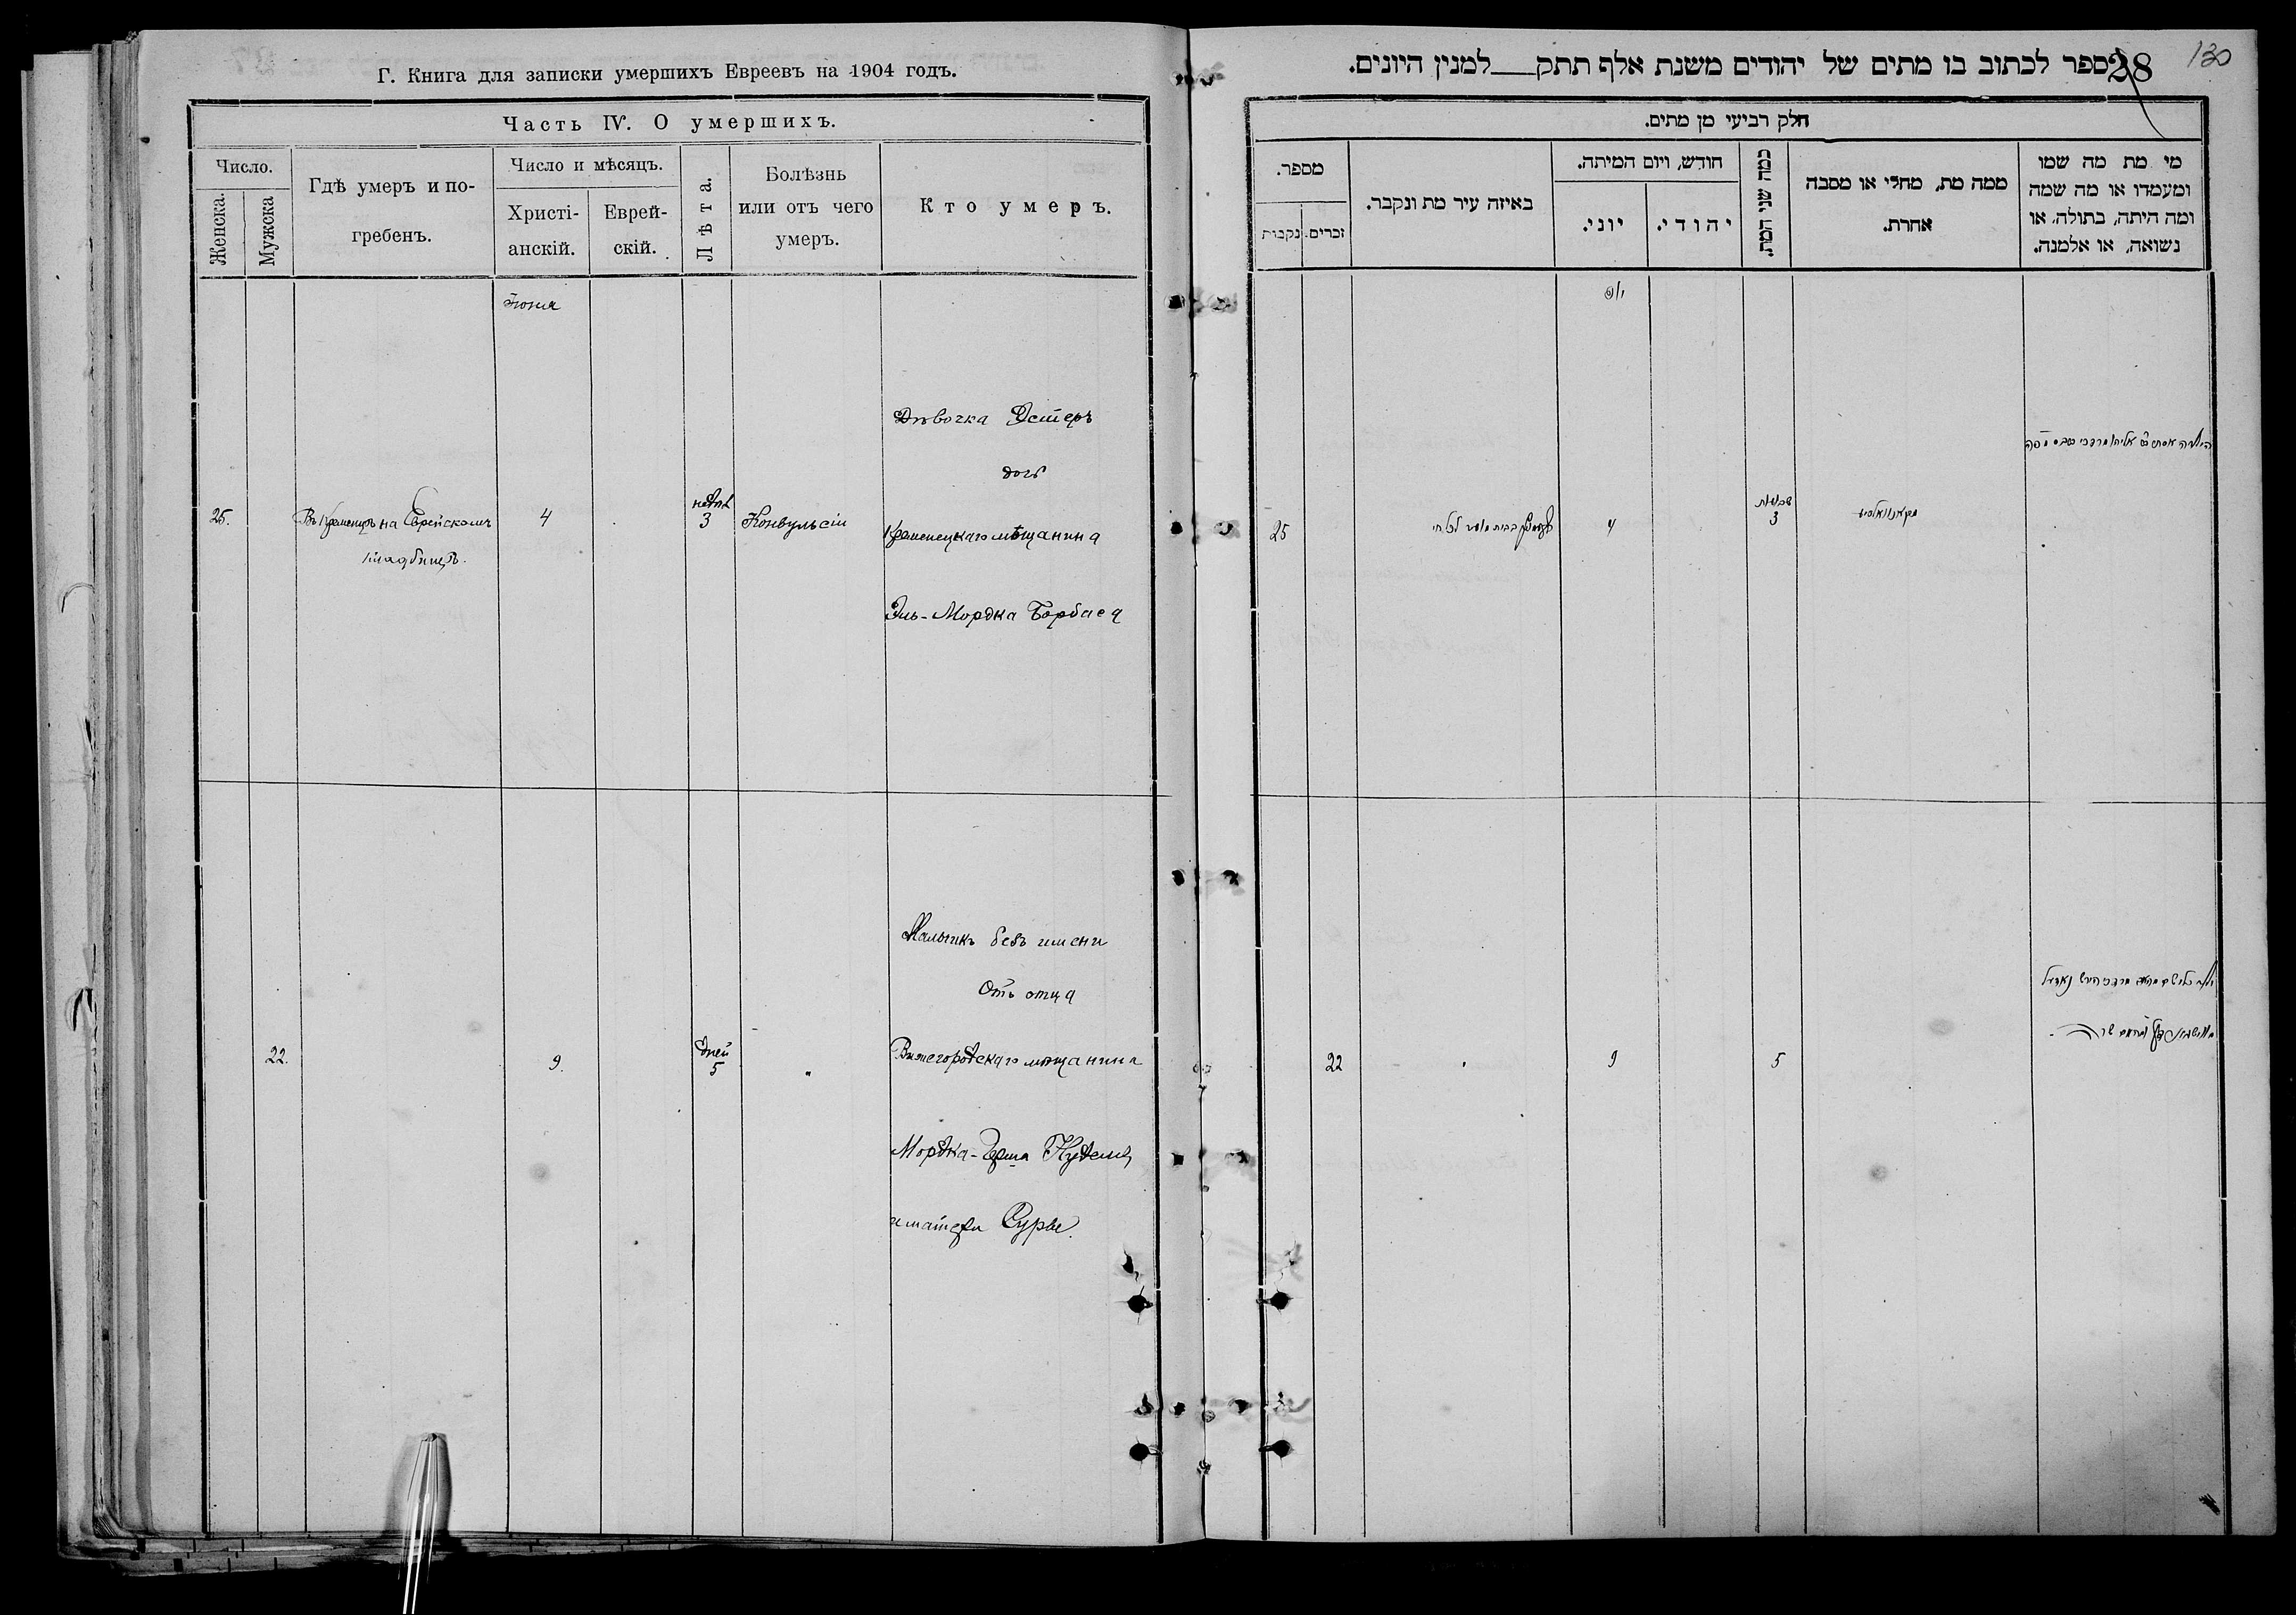 Г. Книга для записки умершихъ Евреевъ на 1904 годъ.
Часть IV. О умершихъ.
Число.
Женска.
Мужска
Гдѣ умеръ и по-
гребенъ.
Число и мѣсяцъ.
Христі-
анскій.
Еврей-
скій.
Лѣта.
Болѣзнь
или отъ чего
умеръ.
Кто умеръ.
Іюня
25.
Въ Кременцѣ на Еврейскомъ
кладбищѣ.
4
недѣл
3
Конвульсіи
Дѣвочка Эстеръ
дочь
Кременецкаго мѣщанина
Эль-Мордка Борбаса
22.
9.
дней
5
"
Мальчикъ безъ имени
Отъ отца
Вижегородскаго мѣщанина
Мордка-Герша
и матери Суры.
130
28
ספר לכתוב בו מתים של יהודים משנת אלף תתק__למנין היונים.
חלק רביעי מן מתים.
מי מת מה שמו
ומעמדו או מה שמה
ומה היתה, בתולה, או
נשואה, או אלמנה.
ממה מת, מחלי או מסבה
אחרת.
כמה שני המת.
חודש, ויום המיתה.
יהודי.
יוני.
באיזה עיר מת ונקבר.
מספר.
זכרים.
נקבות
הילדה אסתר
שבועות
3
4
25
5
9
22